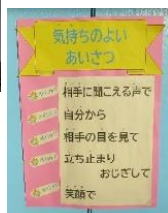 気持ちのよい
あいさつ
相手に聞こえる声で
自分から
相手の目を見て
立ち止まり
おじぎして
笑顔で